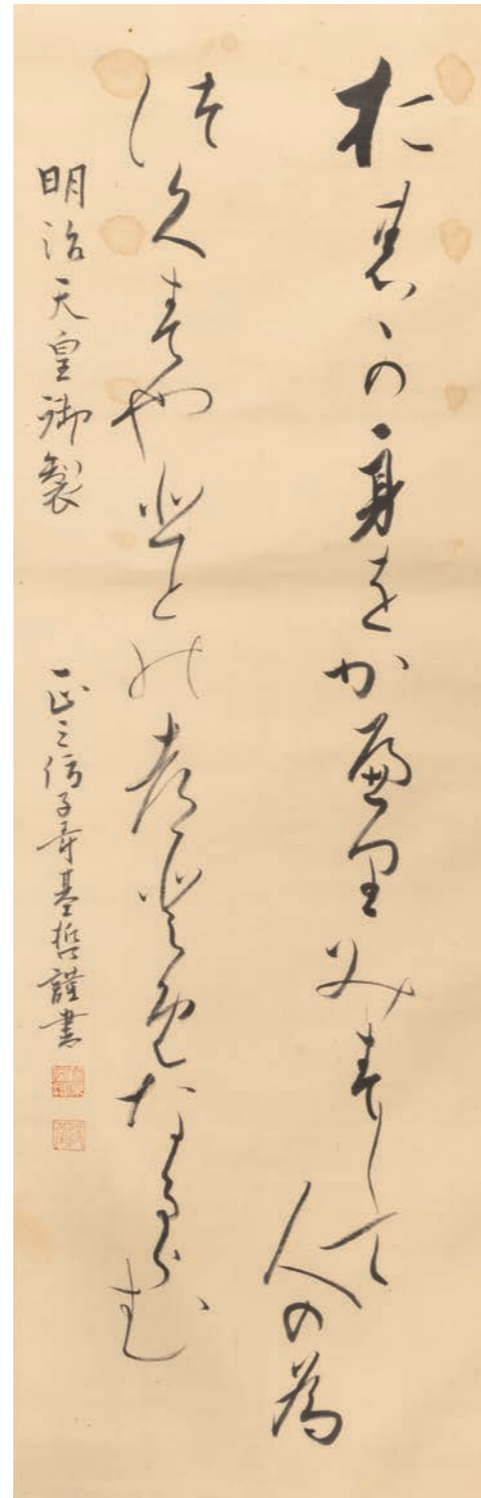 おのか身をかへりみすして人の為
つくすやひとのつとめなるらむ
明治天皇御製
正三位子爵基哲謹書